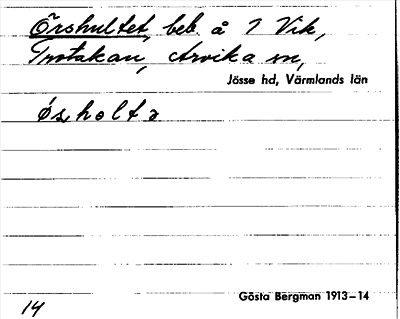 Örshultet, beb. å 7 Vik,
Trotakan, Arvika sn,
Jösse hd, Värmlands län
ǿs̨holtə
Gösta Bergman 1913–14
14